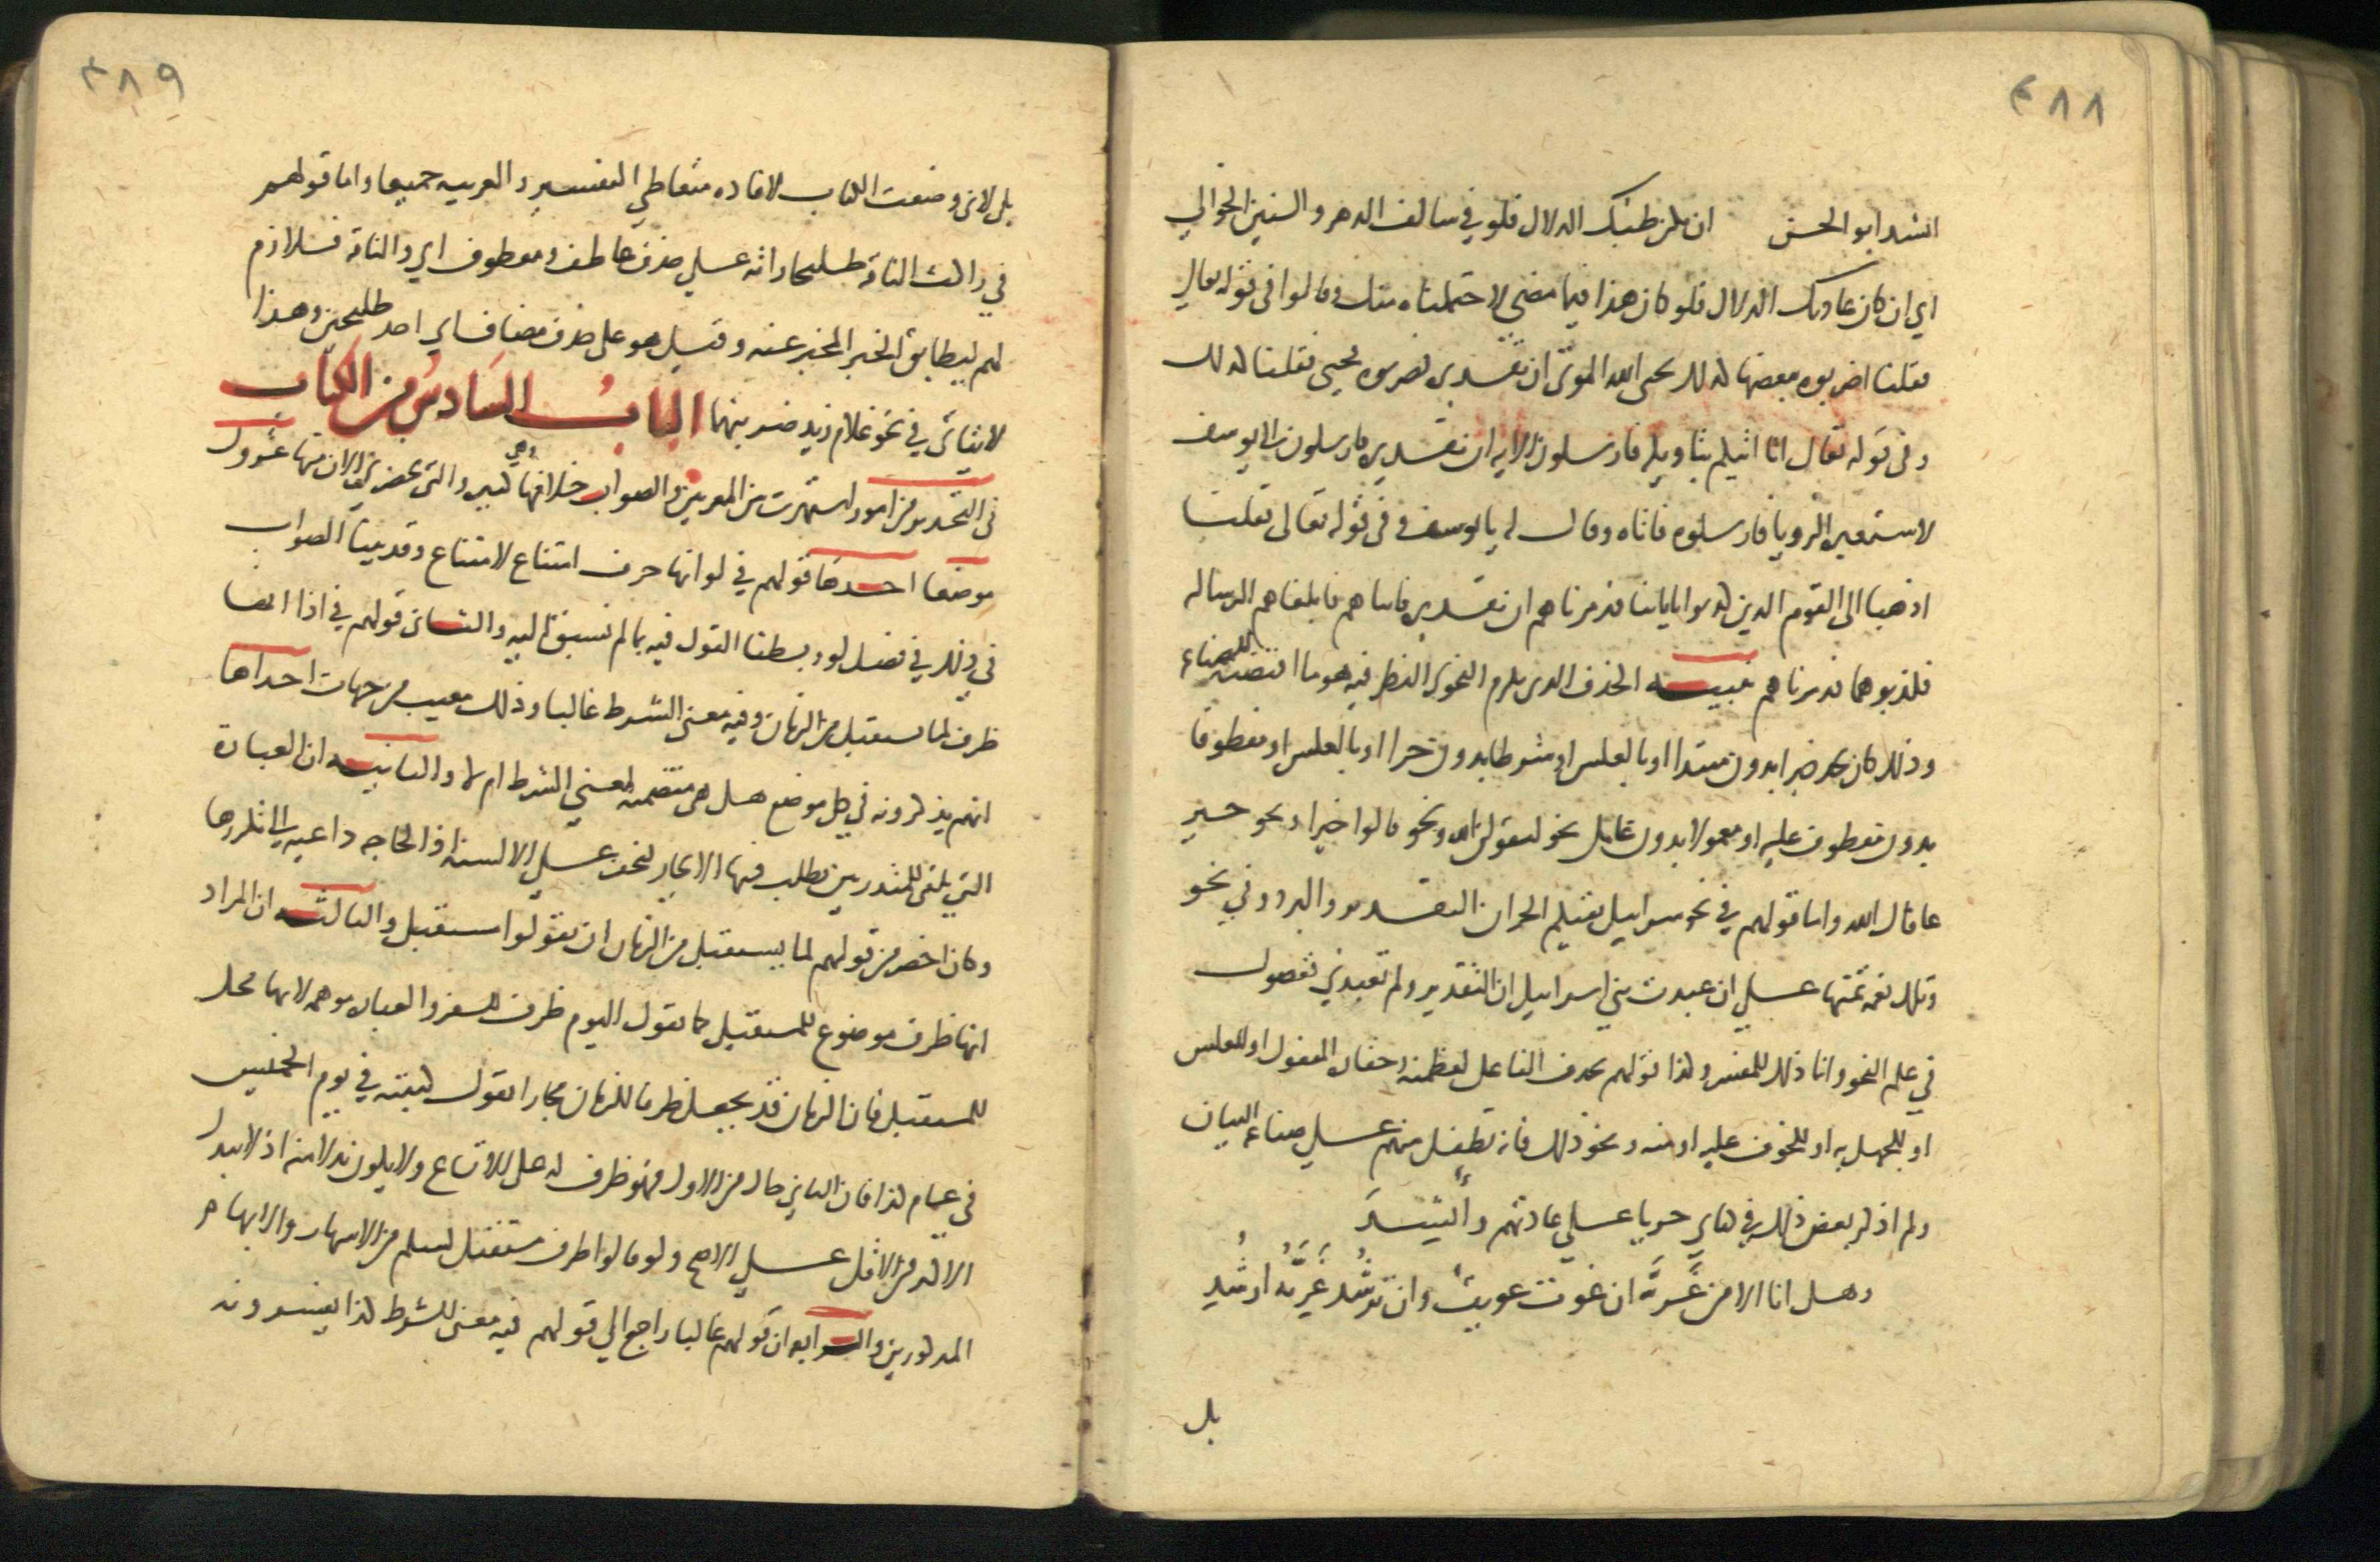 ٤٨٨
انشد ابو الحسن ان يكن طبك الدلال فلو في سالف الدهر والسنين الخوالي
اي ان كان عادتك الدلال فلو كان هذا فيما مضى لاحتملناه منك وقالوا في قوله تعالى
فقلنا اضربوه ببعضها كذلك يحيى الله الموتى ان تقديره فضربوه فحيى فقلنا كذلك
وفي قوله تعالى انا انبئكم بتاويله فارسلون الاية ان تقديره فارسلون الى يوسف
لاستعبره الرويا فارسلوه فاتاه وقال له يا يوسف وفي قوله تعالى فقلنا
اذهبا الى القوم الذين كذبوا باياتنا فدمرناهم ان تقديره فاتياهم فابلغاهم الرساله
فكذبوهما فدمرناهم تنبيه الحذف الذي يلزم النحوي النظر فيه هو ما اقتضته الصناعه
وذلك كان يجد خبرا بدون مبتدا او بالعكس او شرطا بدون جزا او بالعكس او معطوفا
بدون معطوف عليه او معمولا بدون عامل نحو ليقولن الله ونحو قالوا خيرا ونحو خير
عافاك الله واما قولهم في نحو سرابيل تقيكم الحر ان التقدير والبرد وفي نحو
وتلك نعمة تمنها علي ان عبدت بني اسراييل ان التقدير ولم تعبدني ففضول
في علم النحو وانما ذلك للمفسر وكذا قولهم يحذف الفاعل لعظمته وحقارة المفعول او للعكس
او للجهل به او للخوف عليه او منه ونحو ذلك فانه تطفل منهم علي صناعة البيان
ولم اذكر بعض ذلك في كتابي جريا علي عادتهم وانشد
وهل انا الا من غزية ان غوت غويت وان ترشد غزية ارشد
بل
٤٨٩
بل لاني وضعت الكتاب لافادة متعاطي التفسير والعربيه جميعا واما قولهم
في راكب الناقة طليحان انه علي حذف عاطف ومعطوف اي والناقة فلازم
لهم ليطابق الخبر المخبر عنه وقيل هو على حذف مضاف اي احد طليحين وهذا
لا يتاتى في نحو غلام زيد ضربتهما الباب السادس من الكتاب
في التحذير من امور اشتهرت بين المعربين والصواب خلافها وهي كثير والتي تحضرني الان منها عشرون
موضعا احدها قولهم في لو انها حرف امتناع لامتناع وقد بينا الصواب
في ذلك في فصل لو وبسطنا القول فيه بما لم نسبق اليه والثاني قولهم في اذا انها
ظرف لما يستقبل من الزمان وفيه معنى الشرط غالبا وذلك معيب من جهات احداها
انهم يذكرونه في كل موضع هل هي متضمنة لمعنى الشرط ام لا والثانيه ان العبارة
التي تلقى للمتدربين يطلب فيها الايجاز لتخف علي الالسنه اذ الحاجه داعيه الى تكررها
وكان اخصر من قولهم لما يستقبل من الزمان ان يقولوا مستقبل والثالثه ان المراد
انها ظرف موضوع للمستقبل كما تقول اليوم ظرف للسفر والعباره موهمه لانها محل
للمستقبل فان الزمان قد يجعل ظرفا للزمان مجازا تقول كتبته في يوم الخميس
في عام كذا فان الثاني حال من الاول فهو ظرف له على الاتساع ولا يكون بدلا منه اذ لا يبدل
الاكثر من الاقل علي الاصح ولو قالوا ظرف مستقبل لسلم من الاسهاب والابهام
المذكورين والرابعه ان قولهم غالبا راجع الي قولهم فيه معنى الشرط كذا يفسرونه